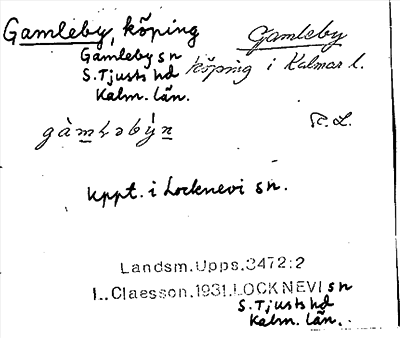 Gamleby, köping
Gamleby sn
S. Tjusts hd
Kalm. län.
Gamleby
köping i Kalmar l.
gàmləbýn
R. L.
uppt. i Locknevi sn.
Landsm. Upps. 3472:2
I. Claesson. 1931. LOCKNEVI sn
S. Tjusts hd
Kalm. län.